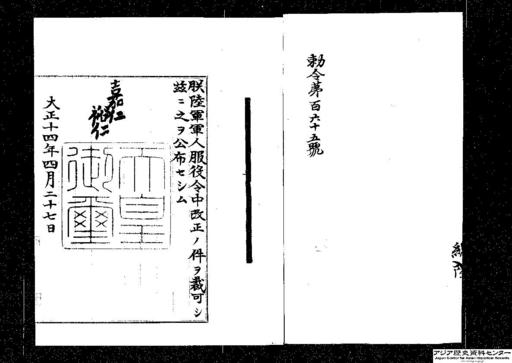 勅令第百六十五號
朕陸軍軍人服役令中改正ノ件ヲ裁可シ
玆ニ之ヲ公布セシム
嘉仁
裕仁
天皇
御璽
大正十四年四月二十七日
アジア歴史資料センター
Japan Center for Asian Historical Records